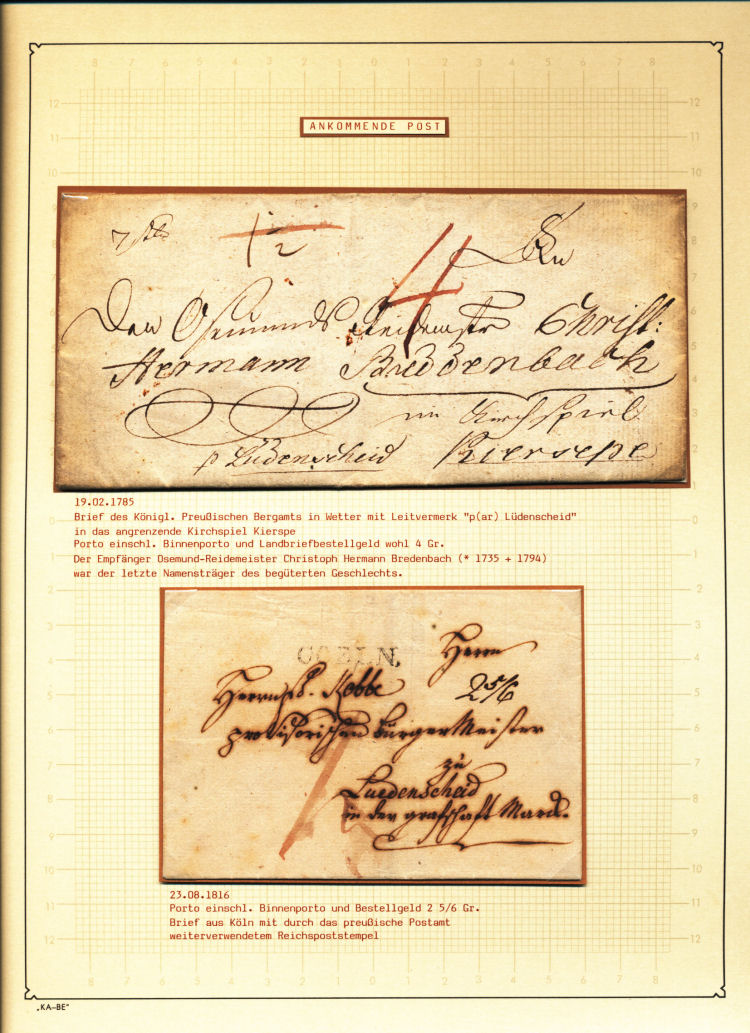 ANKOMMENDE POST
1/2
4
An
Den Osemunds Reidemstr Christ:
Hermann Breddenbach
im Kirchspiel
p Ludenscheid Kierspe
19.02.1785
Brief des Königl. Preußischen Bergamts in Wetter mit Leitvermerk "p(ar) Lüdenscheid"
in das angrenzende Kirchspiel Kierspe
Porto einschl. Binnenporto und Landbriefbestellgeld wohl 4 Gr.
Der Empfänger Osemund-Reidemeister Christoph Hermann Bredenbach (* 1735 + 1794)
war der letzte Namensträger des begüterten Geschlechts.
COELN.
Herrn
Kobbe 2 5/6
provisorischen bürgerMeister
zu
Luedenscheid
in der grafschaft Marck.
23.08.1816
Porto einschl. Binnenporto und Bestellgeld 2 5/6 Gr.
Brief aus Köln mit durch das preußische Postamt
weiterverwendetem Reichspoststempel
„KA–BE"